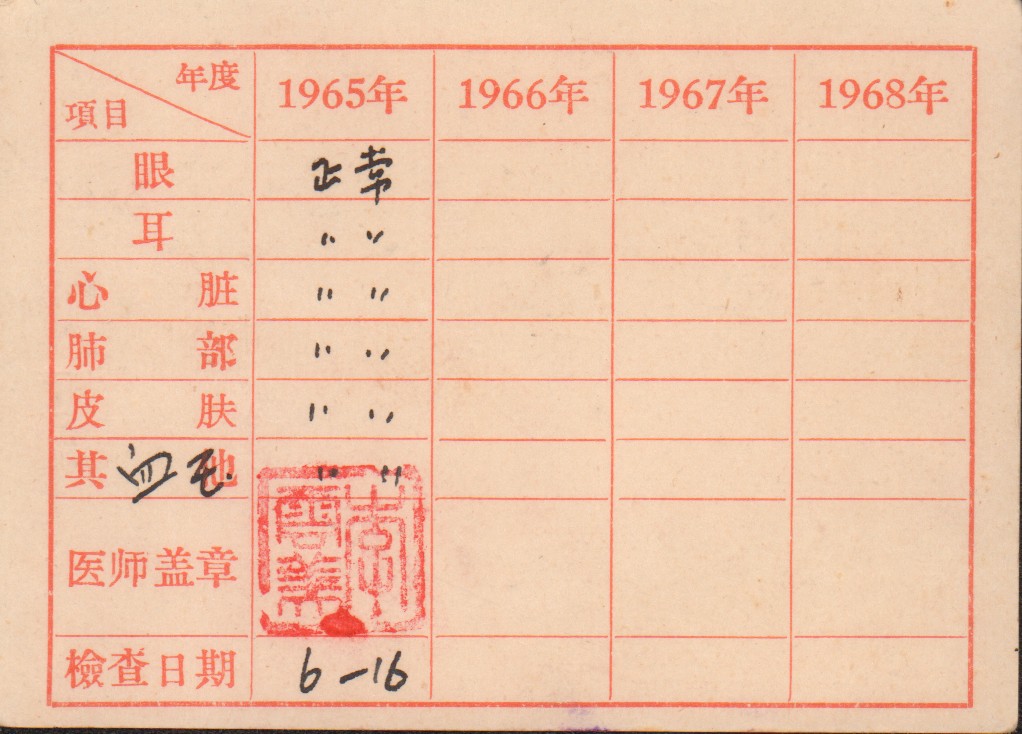 年度 1965年 1966年 1967年 1968年
項目
眼 正常
耳 〃 〃
心脏 〃 〃
肺部 〃 〃
皮肤 〃 〃
其他 血压 〃 〃
医师盖章
檢查日期 6-16